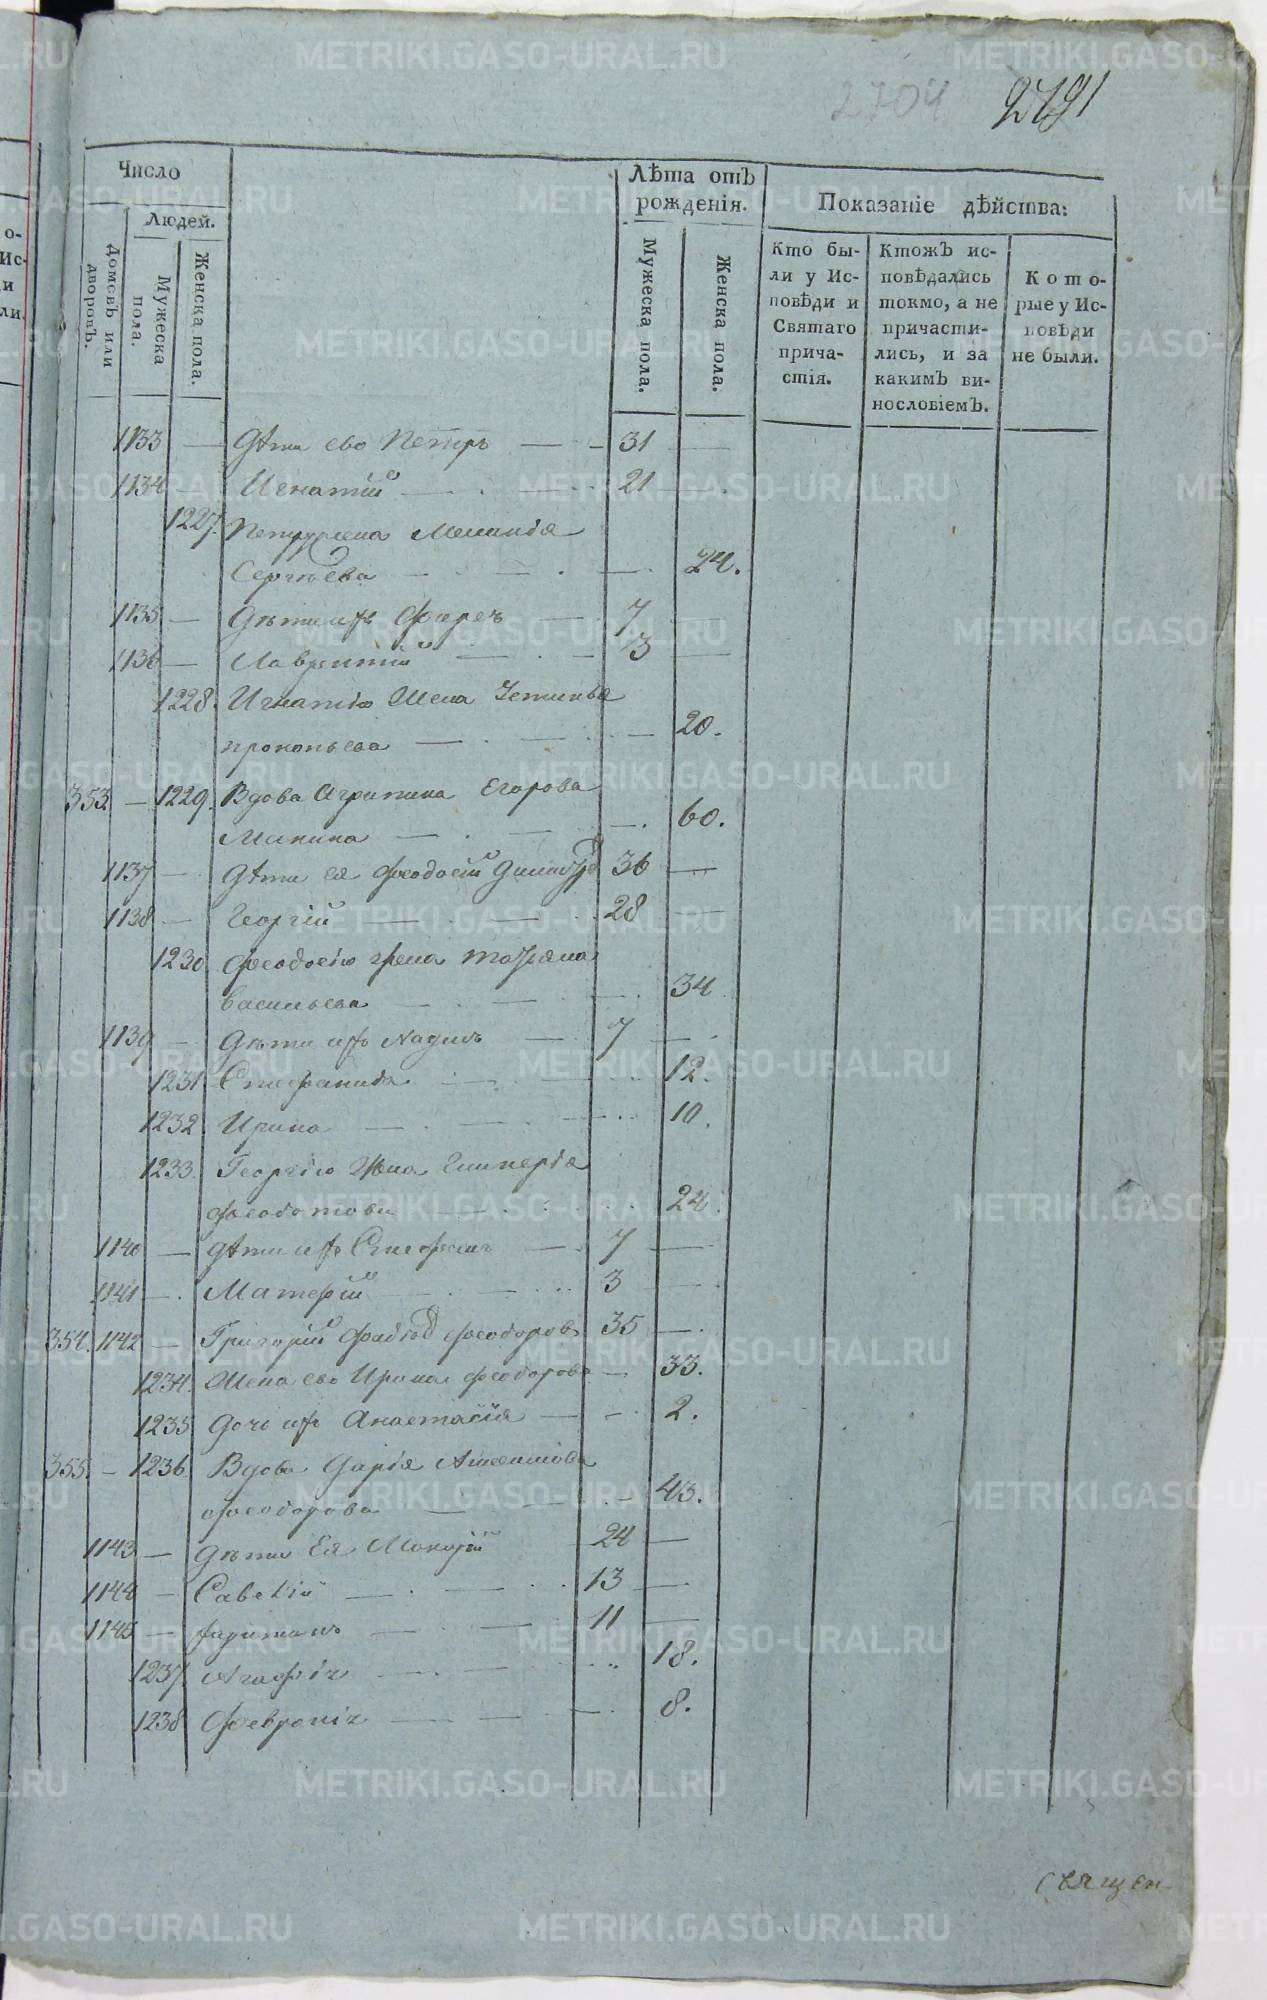 2704 2791
Число
Людей.
Домовъ или дворовъ.
Мужеска пола.
Женска пола.
Лѣта отъ рожденія.
Мужеска пола.
Женска пола.
Показаніе дѣйства:
Кто бы-
ли у Ис-
повѣди и
Святаго
прича-
стія.
Ктожъ ис-
повѣдались
токмо, а не
причасти-
лись, и за
какимъ ви-
нословіемъ.
Кото-
рые у Ис-
повѣди
не были.
1133 — Дѣти ево Петръ — 31 —
1134 — Игнатій — 21 —
1227. Петру жена Меланія
Сергѣева — 24.
1135 — Дѣти ихъ — 7 —
1136 — Лаврентій — 3 —
1228. Игнатію Жена
прокопьева — 20.
353. — 1229. Вдова Агрипина Егорова
Манина — 60.
1137 — Дѣти ея Феодосій 36 —
1138 — Георгій — 28 —
1230 Феодосію жена татіяна
Васильева — 34
1139 — Дѣти ихъ — 7 —
1231 Стефанида — 12.
1232. Ирина — 10.
1233. Георгію Жена Гликерія
Феодотова — 24.
1140 — Дѣти ихъ Стефанъ — 7 —
1141 — . Матфій — 3 —
354. 1142 — Григорій феодоровъ 35 — .
1234. Жена ево Ирина феодорова — 33.
1235 Дочь ихъ Анастасія — 2.
355. — 1236 Вдова Дарія
феодорова — 43.
1143 — Дѣти Ея Макарій 24 —
1144 — Саветій — 13 —
1145 — — 11 —
1237. Агафія — 18.
1238 Февронія — 8.
Священ
METRIKI.GASO-URAL.RU